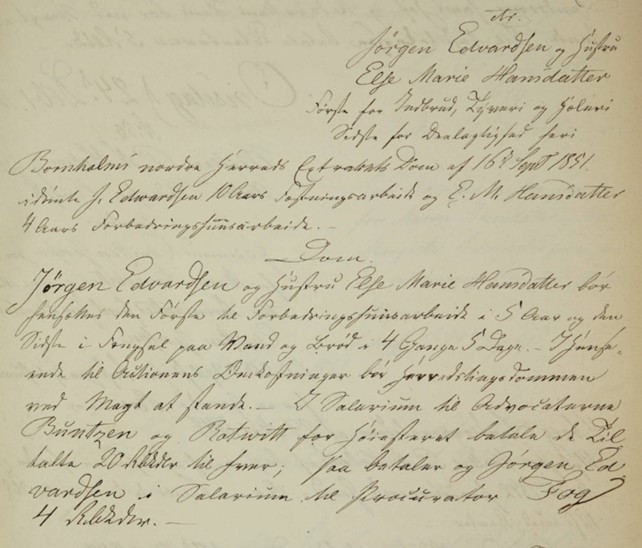 ctr.
Jørgen Edvardsen og Hustru
Else Marie Hansdatter
Første for Indbrud, Tyveri og Hæleri
Sidste for Deelagtighed heri
Bornholms nordre Herreds Extrarets Dom af 16d Septr 1851.
idømte J. Edvardsen 10 Aars Fæstningsarbeide og E. M. Hansdatter
4 Aars Forbedringshuusarbeide. –
Dom.
Jørgen Edvardsen og Hustru Else Marie Hansdatter bør
hensættes den Første til Forbedringshuusarbeide i 5 Aar og den
Sidste i Fængsel paa Vand og Brød i 4 Gange 5 Dage. – I Henseende
ende til Actionens Omkostninger bør Herredstingsdommen
ved Magt at stande. – I Salarium til Advocaterne
Buntzen og Rotwitt for Høiesteret betale de Til
talte 20 Rbkdlr til hver; saa betaler og Jørgen Ed
vardsen i Salarium til Procurator Fog
4 Rbkdlr. –